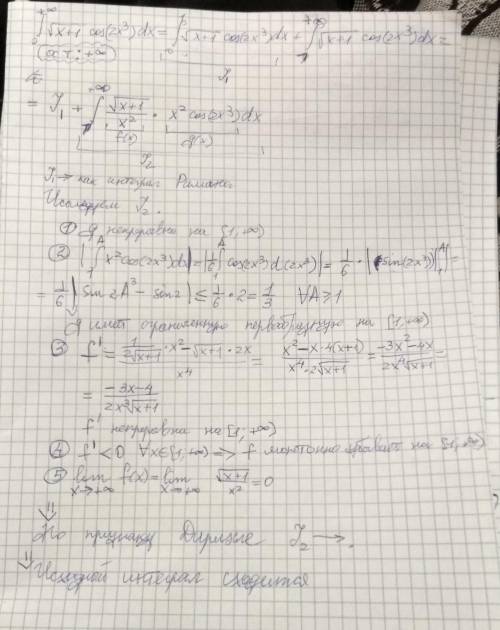 ∫₀^{+∞} √(x+1) cos(2x³)dx = ∫₀^1 √(x+1) cos(2x³)dx + ∫₁^{+∞} √(x+1) cos(2x³)dx =
(ост: +∞) J₁
= J₁ + ∫₁^{+∞} √(x+1)/x² · x² cos(2x³)dx
f(x) g(x)
J₂
J₁ → как интеграл Римана.
Исследуем J₂.
① g непрерывна на [1, +∞)
② |∫₁^A x² cos(2x³)dx| = |1/6 ∫₁^A cos(2x³) d(2x³)| = 1/6 · |(sin(2x³))|₁^A| =
= 1/6 |sin 2A³ - sin 2| ≤ 1/6 · 2 = 1/3 ∀A ≥ 1
g имеет ограниченную первообразную на [1, +∞)
③ f' = (1/(2√(x+1)) · x² - √(x+1) · 2x)/x⁴ = (x² - x · 4(x+1))/(x⁴ · 2√(x+1)) = (-3x² - 4x)/(2x⁴√(x+1)) =
= (-3x - 4)/(2x³√(x+1))
f' непрерывна на [1; +∞)
④ f' < 0 ∀x∈[1; +∞) => f монотонно убывает на [1; +∞)
⑤ lim_{x→+∞} f(x) = lim_{x→+∞} √(x+1)/x² = 0
⇓
По признаку Дирихле J₂ →.
⇓
Исходный интеграл сходится